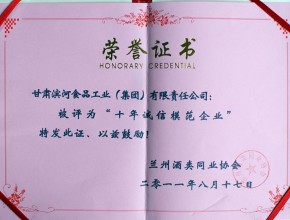 荣誉证书
HONORARY CREDENTIAL
甘肃滨河食品工业（集团）有限责任公司：
被评为“十年诚信模范企业”
特发此证、以兹鼓励！
兰州酒类同业协会
二零一一年八月十七日